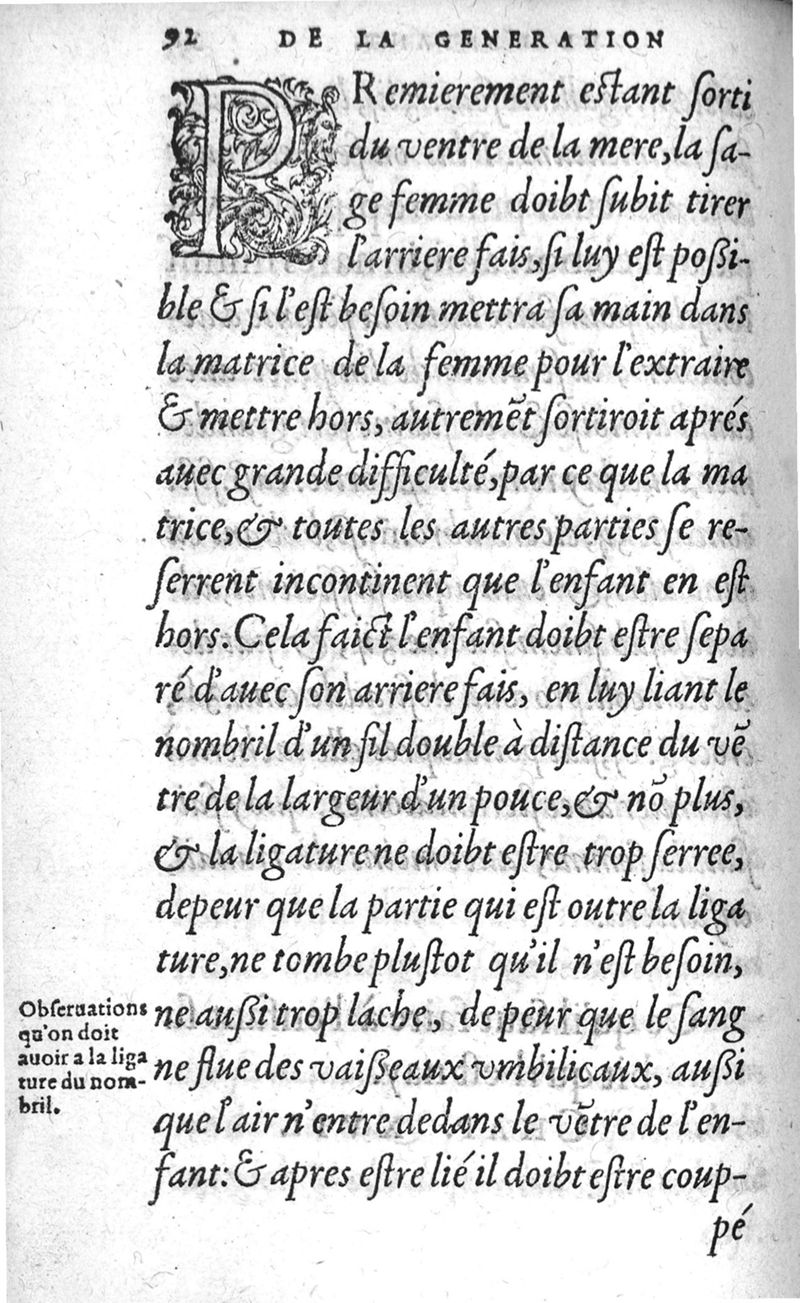 92 DE LA GENERATION
PRemierement estant sorti
du ventre de la mere, la sa-
ge femme doibt subit tirer
l'arriere fais, si luy est possi-
ble & si l'est besoin mettra sa main dans
la matrice de la femme pour l'extraire
& mettre hors, autremẽt sortiroit aprés
auec grande difficulté, par ce que la ma
trice, & toutes les autres parties se re-
serrent incontinent que l'enfant en est
hors. Cela faict l'enfant doibt estre sepa
ré d'auec son arriere fais, en luy liant le
nombril d'un fil double à distance du vẽ
tre de la largeur d'un pouce, & nõ plus,
& la ligature ne doibt estre trop serree,
depeur que la partie qui est outre la liga
ture, ne tombe plustot qu'il n'est besoin,
ne aussi trop lache, de peur que le sang
ne flue des vaisseaux vmbilicaux, aussi
que l'air n'entre dedans le vẽtre de l'en-
fant: & apres estre lié il doibt estre coup-
pé
Obseruations
qu'on doit
auoir a la liga
ture du nom-
bril.